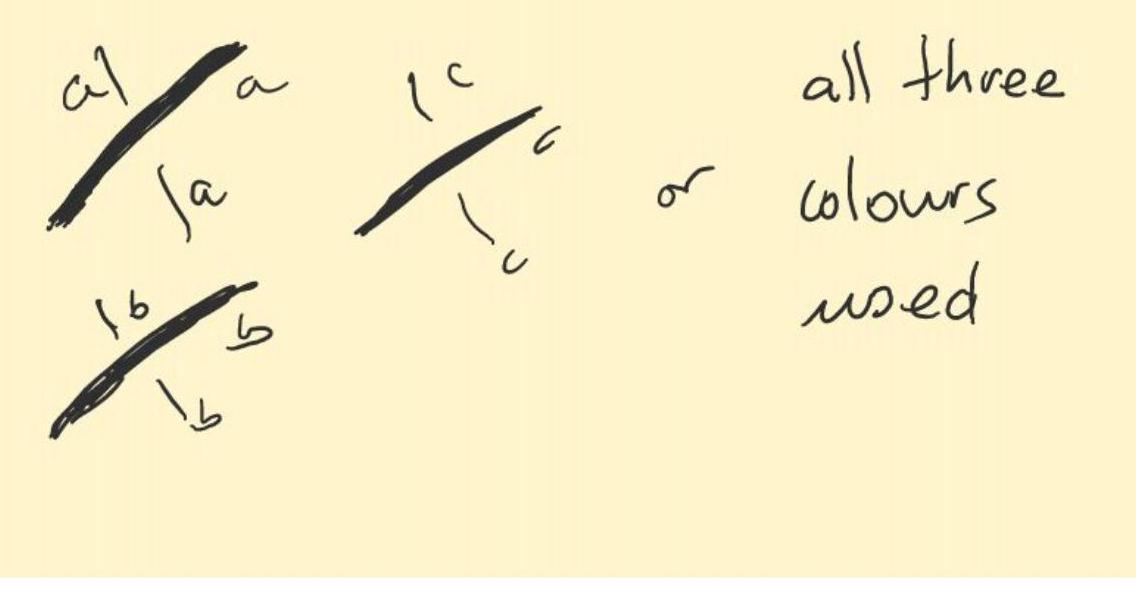 a a
a
c
c
c
b
b
b
or
all three
colours
used